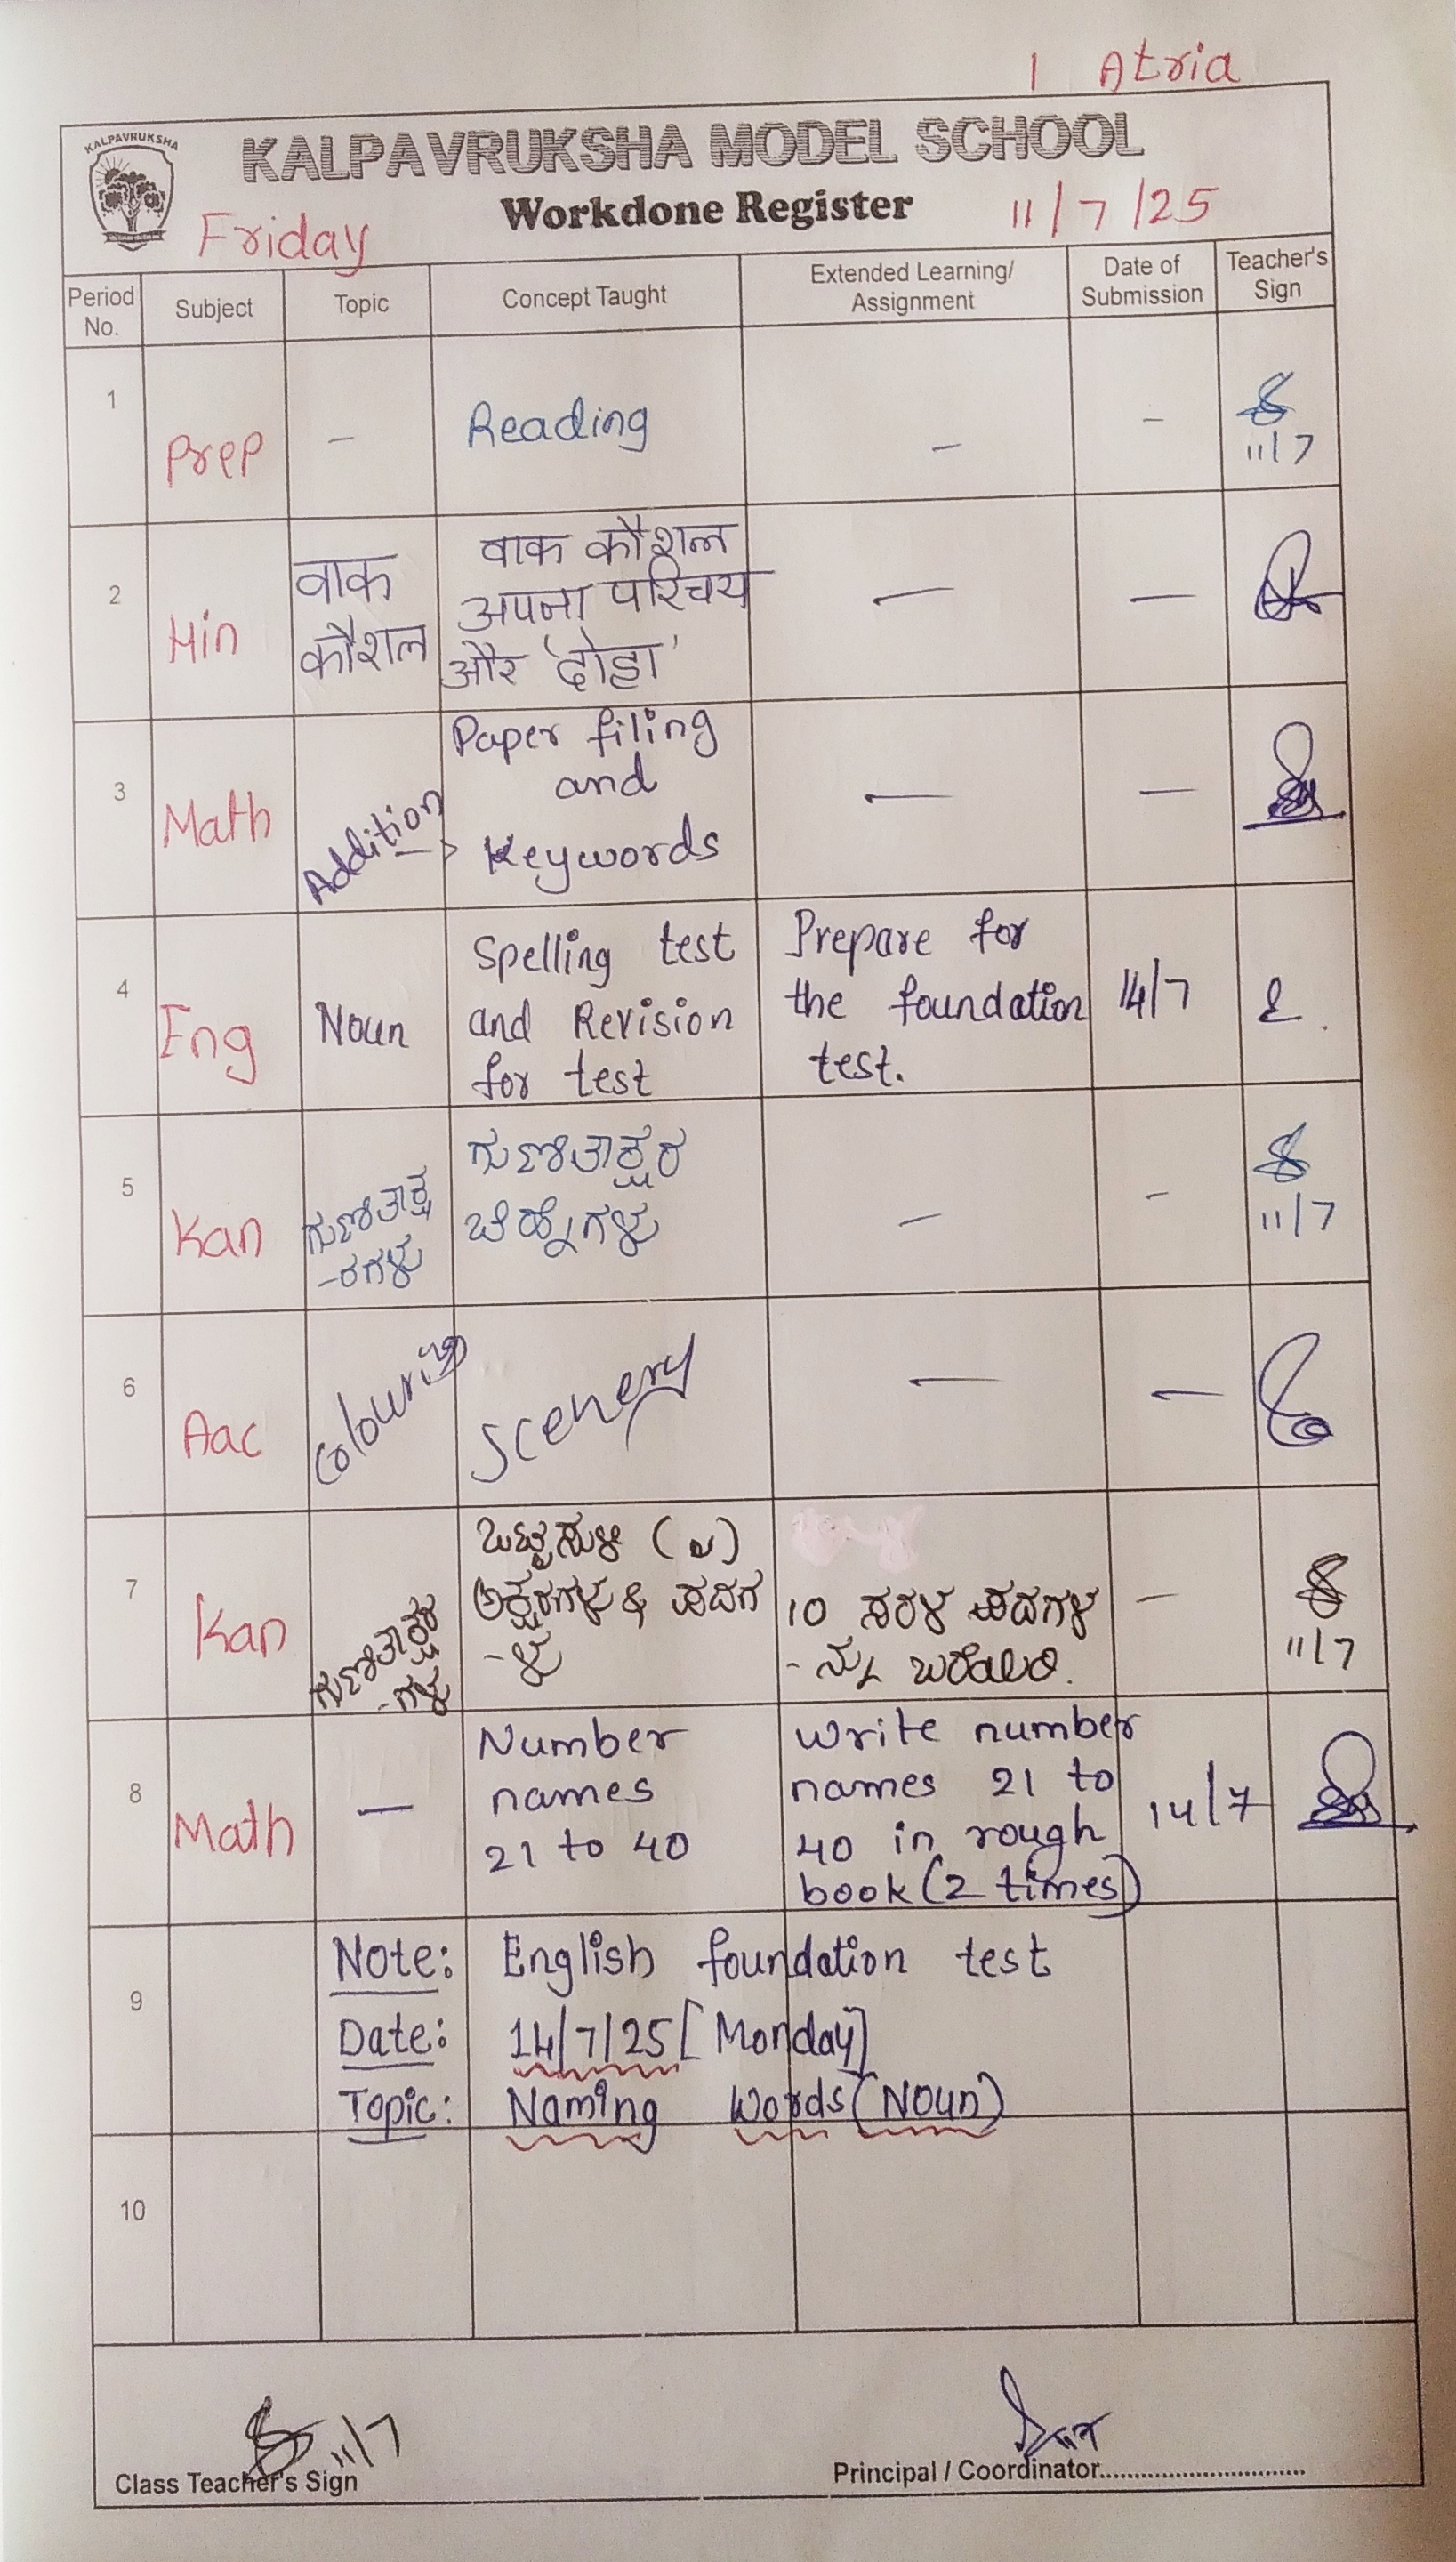 1 Atria
KALPAVRUKSHA
KALPAVRUKSHA MODEL SCHOOL
Workdone Register
Friday
11/7/25
Period No.
Subject
Topic
Concept Taught
Extended Learning/
Assignment
Date of
Submission
Teacher's
Sign
1
Prep
-
Reading
-
-
11/7
2
Hin
वाक
कौशल
वाक कौशल
अपना परिचय
और 'दोहा'
-
-
3
Math
Addition
Paper filing
and
Keywords
-
-
4
Eng
Noun
Spelling test
and Revision
for test
Prepare for
the foundation
test.
14/7
5
Kan
ಗುಣಿತಾಕ್ಷ
-ರಗಳು
ಗುಣಿತಾಕ್ಷರ
ಚಿಹ್ನೆಗಳು
-
-
11/7
6
Aac
Colouring
Scenery
-
-
7
Kan
ಗುಣಿತಾಕ್ಷರ
-ಗಳು
ಒಟ್ರಸುಳಿ
ಅಕ್ಷರಗಳು & ಪದಗ
-ಳು
10 ಸರಳ ಪದಗಳ
-ನ್ನು ಬರೆಯಿರಿ.
-
11/7
8
Math
-
Number
names
21 to 40
Write number
names 21 to
40 in rough
book (2 times)
14/7
9
Note: English foundation test
Date: 14/7/25 [Monday]
Topic: Naming Words (Noun)
10
11/7
Class Teacher's Sign
Principal / Coordinator..............................